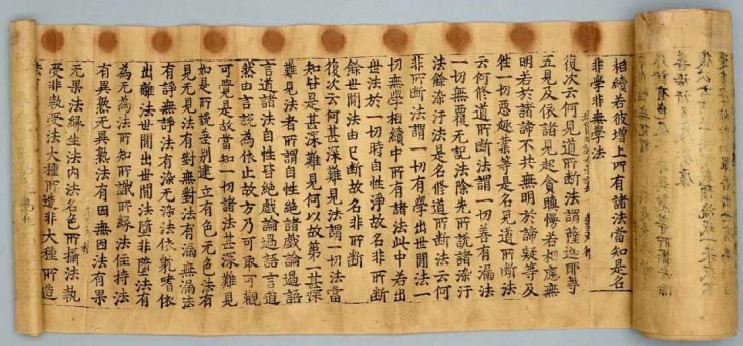 相續若彼增上所有諸法當知是名
非學非無學法
復次云何見道所斷法謂薩迦耶等
五見及依諸見起貪瞋慢若相應無
明若於諸諦不共無明於諦疑等及
往一切惡趣業等是名見道所斷法
云何修道所斷法謂一切善有漏法
一切無覆無記法除先所說諸染汙
法餘染汙法是名修道所斷法云何
非所斷法謂一切有學出世間法一
切無學相續中所有諸法此中若出
世法於一切時自性淨故名非所斷
餘世間法由已斷故名非所斷
復次云何甚深難見法謂一切法當
知皆是甚深難見何以故第一甚深
難見法者所謂自性絕諸戲論過語
言道諸法自性皆絕戲論過語言道
然由言說為依止故方乃可取可觀
可覺是故當知一切諸法甚深難見
如是所說差別建立有色无色法有
見无見法有對無對法有漏無漏法
有諍無諍法有染无染法依躭嗜依
出離法世間出世間法墮非墮法有
為无為法所知所識所緣法住持法
有異熟无異熟法有因無因法有果
无果法緣生法内法名色所攝法執
受非執受法大種所造非大種所造